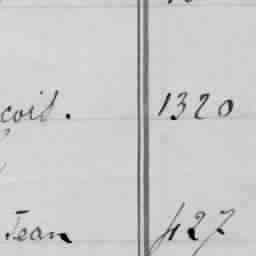 coit. 1320
Jean 427